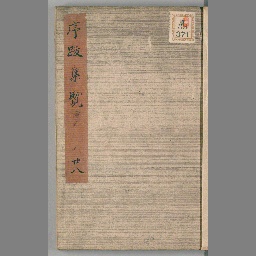 序跋集覧
廿八
371